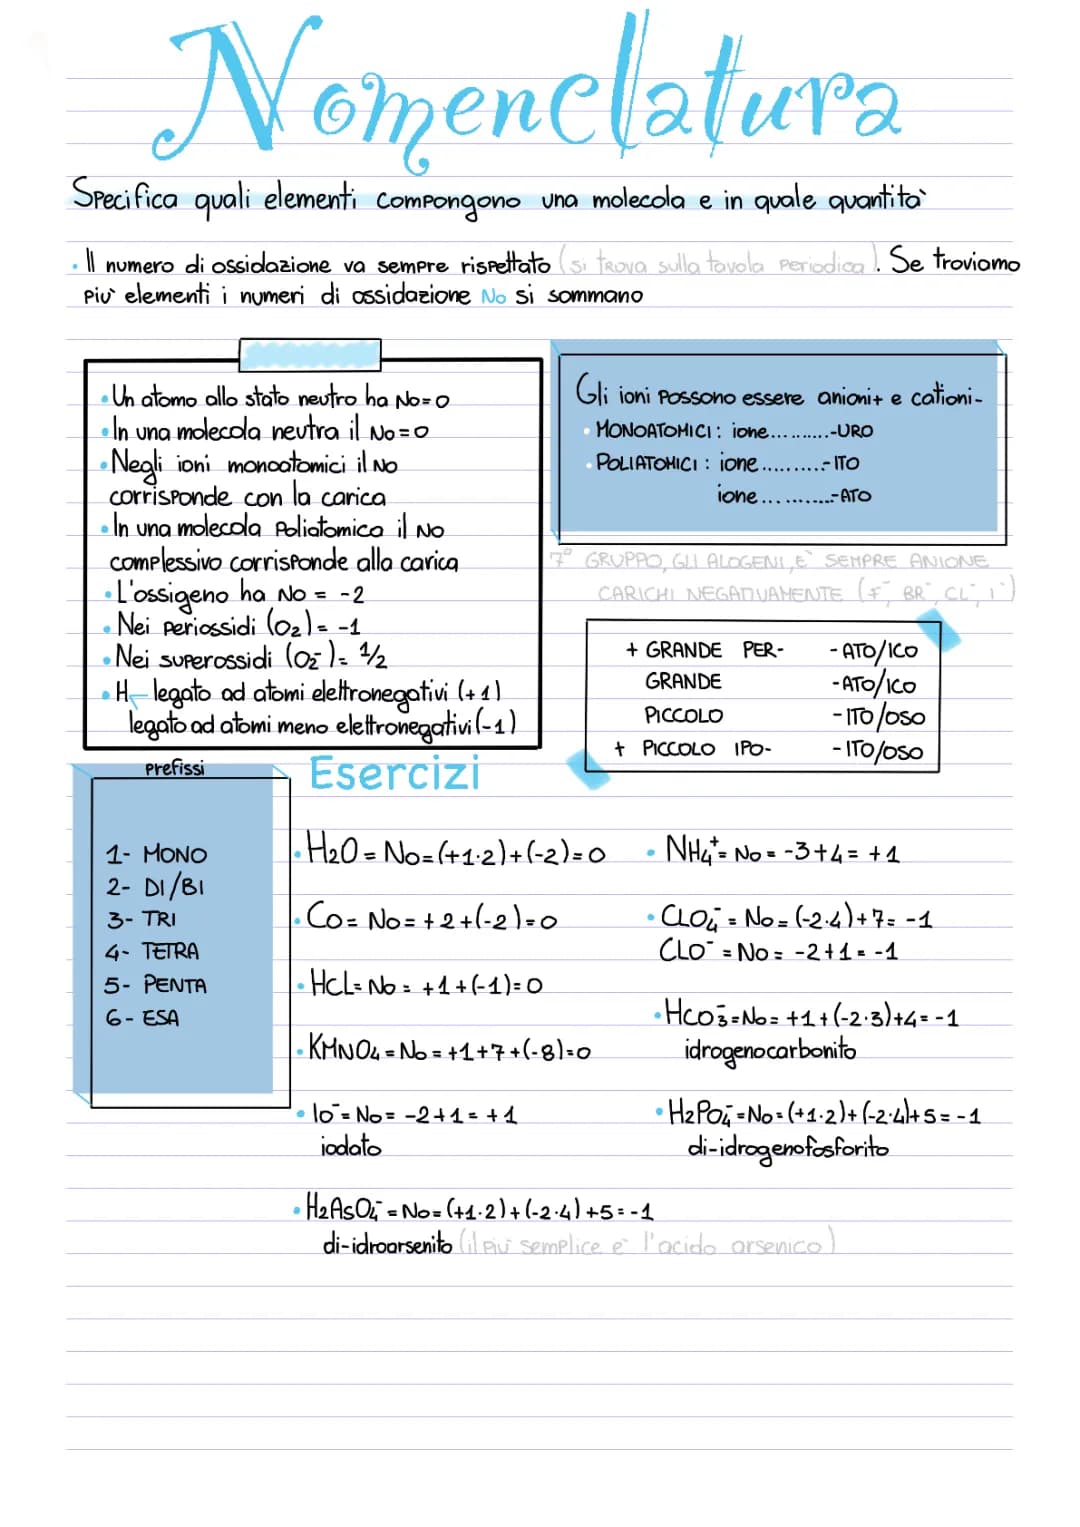 Nomenclatura
Specifica quali elementi compongono una molecola e in quale quantità
• Il numero di ossidazione va sempre rispettato (si trova sulla tavola periodica). Se troviamo
più elementi i numeri di ossidazione No si sommano
• Un atomo allo stato neutro ha No=0
• In una molecola neutra il No=0
• Negli ioni monoatomici il No
corrisponde con la carica
• In una molecola Poliatomica il No
complessivo corrisponde alla carica
• L'ossigeno ha No = -2
• Nei periossidi (O₂)= -1
• Nei superossidi (O₂⁻)= ½
• H legato ad atomi elettronegativi (+1)
legato ad atomi meno elettronegativi (-1)
Gli ioni possono essere anioni+ e cationi-
• MONOATOMICI: ione..........-URO
• POLIATOMICI: ione..........-ITO
ione...........-ATO
7° GRUPPO, GLI ALOGENI, È SEMPRE ANIONE
CARICHI NEGATIVAMENTE (F⁻, BR⁻, CL⁻, I⁻)
+ GRANDE PER- -ATO/ICO
GRANDE -ATO/ICO
PICCOLO -ITO/OSO
+ PICCOLO IPO- -ITO/OSO
prefissi
1- MONO
2- DI/BI
3- TRI
4- TETRA
5- PENTA
6- ESA
Esercizi
• H₂O = No=(+1·2)+(-2)=0
• Co= No= +2+(-2)=0
• HCL= No= +1+(-1)=0
• KMNO₄ = No= +1+7+(-8)=0
• IO⁻= No= -2+1= +1
iodato
• H₂AsO₄⁻ = No= (+1·2)+(-2·4)+5=-1
di-idroarsenito (il più semplice è l'acido arsenico)
• NH₄⁺= No= -3+4= +1
• CLO₄⁻ = No= (-2·4)+7= -1
CLO⁻ = No= -2+1= -1
• HCO₃⁻=No= +1+(-2·3)+4= -1
idrogenocarbonito
• H₂PO₄⁻=No=(+1·2)+(-2·4)+5= -1
di-idrogenofosforito